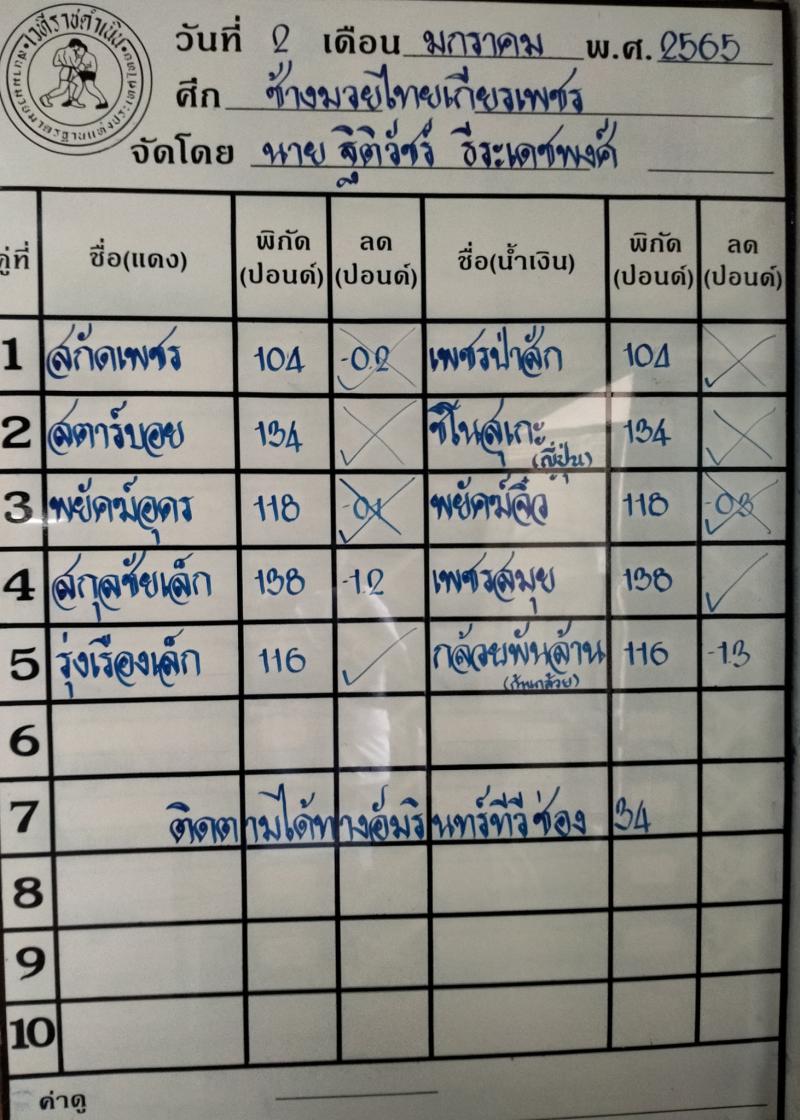 เวทีราชดำเนิน
สนามมวยมาตรฐานแห่งประเทศไทย
วันที่ 2 เดือน มกราคม พ.ศ. 2565
ศึก ช้างมวยไทยเกียรเพชร
จัดโดย นาย ฐิติวัชร์ ธีระเดชพงศ์
คู่ที่ ชื่อ(แดง) พิกัด (ปอนด์) ลด (ปอนด์) ชื่อ(น้ำเงิน) พิกัด (ปอนด์) ลด (ปอนด์)
1 สกัดเพชร 104 -0.2 เพชรป่าสัก 104
2 สตาร์บอย 134 ชิโนสุเกะ (ญี่ปุ่น) 134
3 พยัคฆ์อุดร 118 -0.1 พยัคฆ์จิ๋ว 118 -0.3
4 สกุลชัยเล็ก 138 -1.2 เพชรสมุย 138
5 รุ่งเรืองเล็ก 116 กล้วยพันล้าน (ก้านกล้วย) 116 -1.3
6
7 ติดตามได้ทางอัมรินทร์ทีวี ช่อง 34
8
9
10
ค่าดู